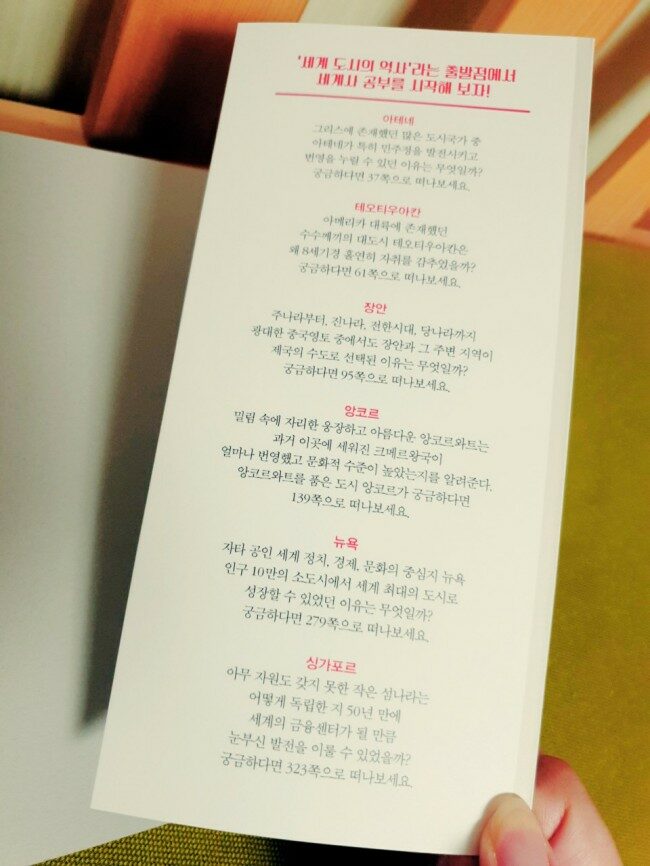 '세계 도시의 역사'라는 출발점에서
세계사 공부를 시작해 보자!
아테네
그리스에 존재했던 많은 도시국가 중
아테네가 특히 민주정을 발전시키고
번영을 누릴 수 있던 이유는 무엇일까?
궁금하다면 37쪽으로 떠나보세요.
테오티우아칸
아메리카 대륙에 존재했던
수수께끼의 대도시 테오티우아칸은
왜 8세기경 홀연히 자취를 감추었을까?
궁금하다면 61쪽으로 떠나보세요.
장안
주나라부터, 진나라, 전한시대, 당나라까지
광대한 중국영토 중에서도 장안과 그 주변 지역이
제국의 수도로 선택된 이유는 무엇일까?
궁금하다면 95쪽으로 떠나보세요.
앙코르
밀림 속에 자리한 웅장하고 아름다운 앙코르와트는
과거 이곳에 세워진 크메르왕국이
얼마나 번영했고 문화적 수준이 높았는지를 알려준다.
앙코르와트를 품은 도시 앙코르가 궁금하다면
139쪽으로 떠나보세요.
뉴욕
자타 공인 세계 정치, 경제, 문화의 중심지 뉴욕
인구 10만의 소도시에서 세계 최대의 도시로
성장할 수 있었던 이유는 무엇일까?
궁금하다면 279쪽으로 떠나보세요.
싱가포르
아무 자원도 갖지 못한 작은 섬나라는
어떻게 독립한 지 50년 만에
세계의 금융센터가 될 만큼
눈부신 발전을 이룰 수 있었을까?
궁금하다면 323쪽으로 떠나보세요.